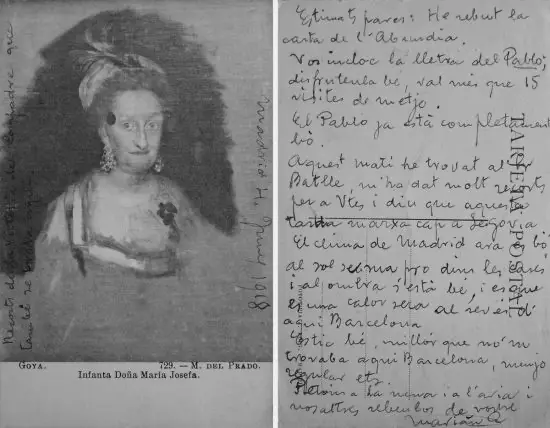 Madrid 14 Juny 1918
Records de la
també
GOYA. 729. — M. DEL PRADO.
Infanta Doña María Josefa.
Estimats pares: He rebut la
carta de l'Abaudia.
Vos incloc la lletra del Pablo;
disfruteula bé, val més que 15
visites de metjo.
El Pablo ja està completament
bò.
Aquest mati he trovat al Sr
Batlle, m'ha dat molt recorts
per a Vtes i diu que aquesta
tarda marxa cap a Segovia
El clima de Madrid ara es bò
al sol crema pro dins les cases
i al ombra s'està bé, i es que
es una calor seca al revés d'
aqui Barcelona
Estic bé, millor que no m
trovaba aqui Barcelona, menjo
regular etz.
Petons a la nena i a l'avia i
vosaltres rebeulos de vostre
Marián
TARJETA POSTAL